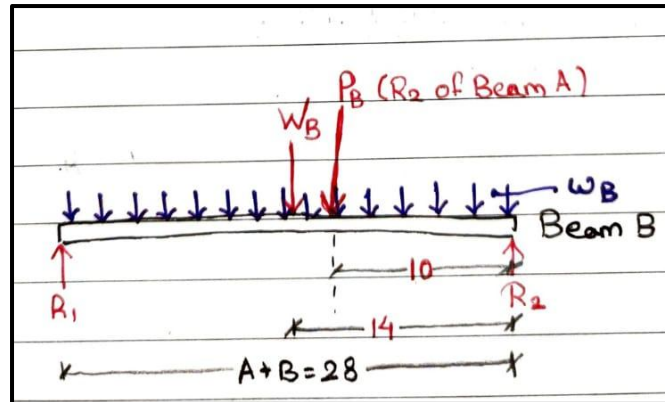 P_B (R₂ of Beam A)
W_B
w_B
Beam B
10
R₁
R₂
14
A+B=28